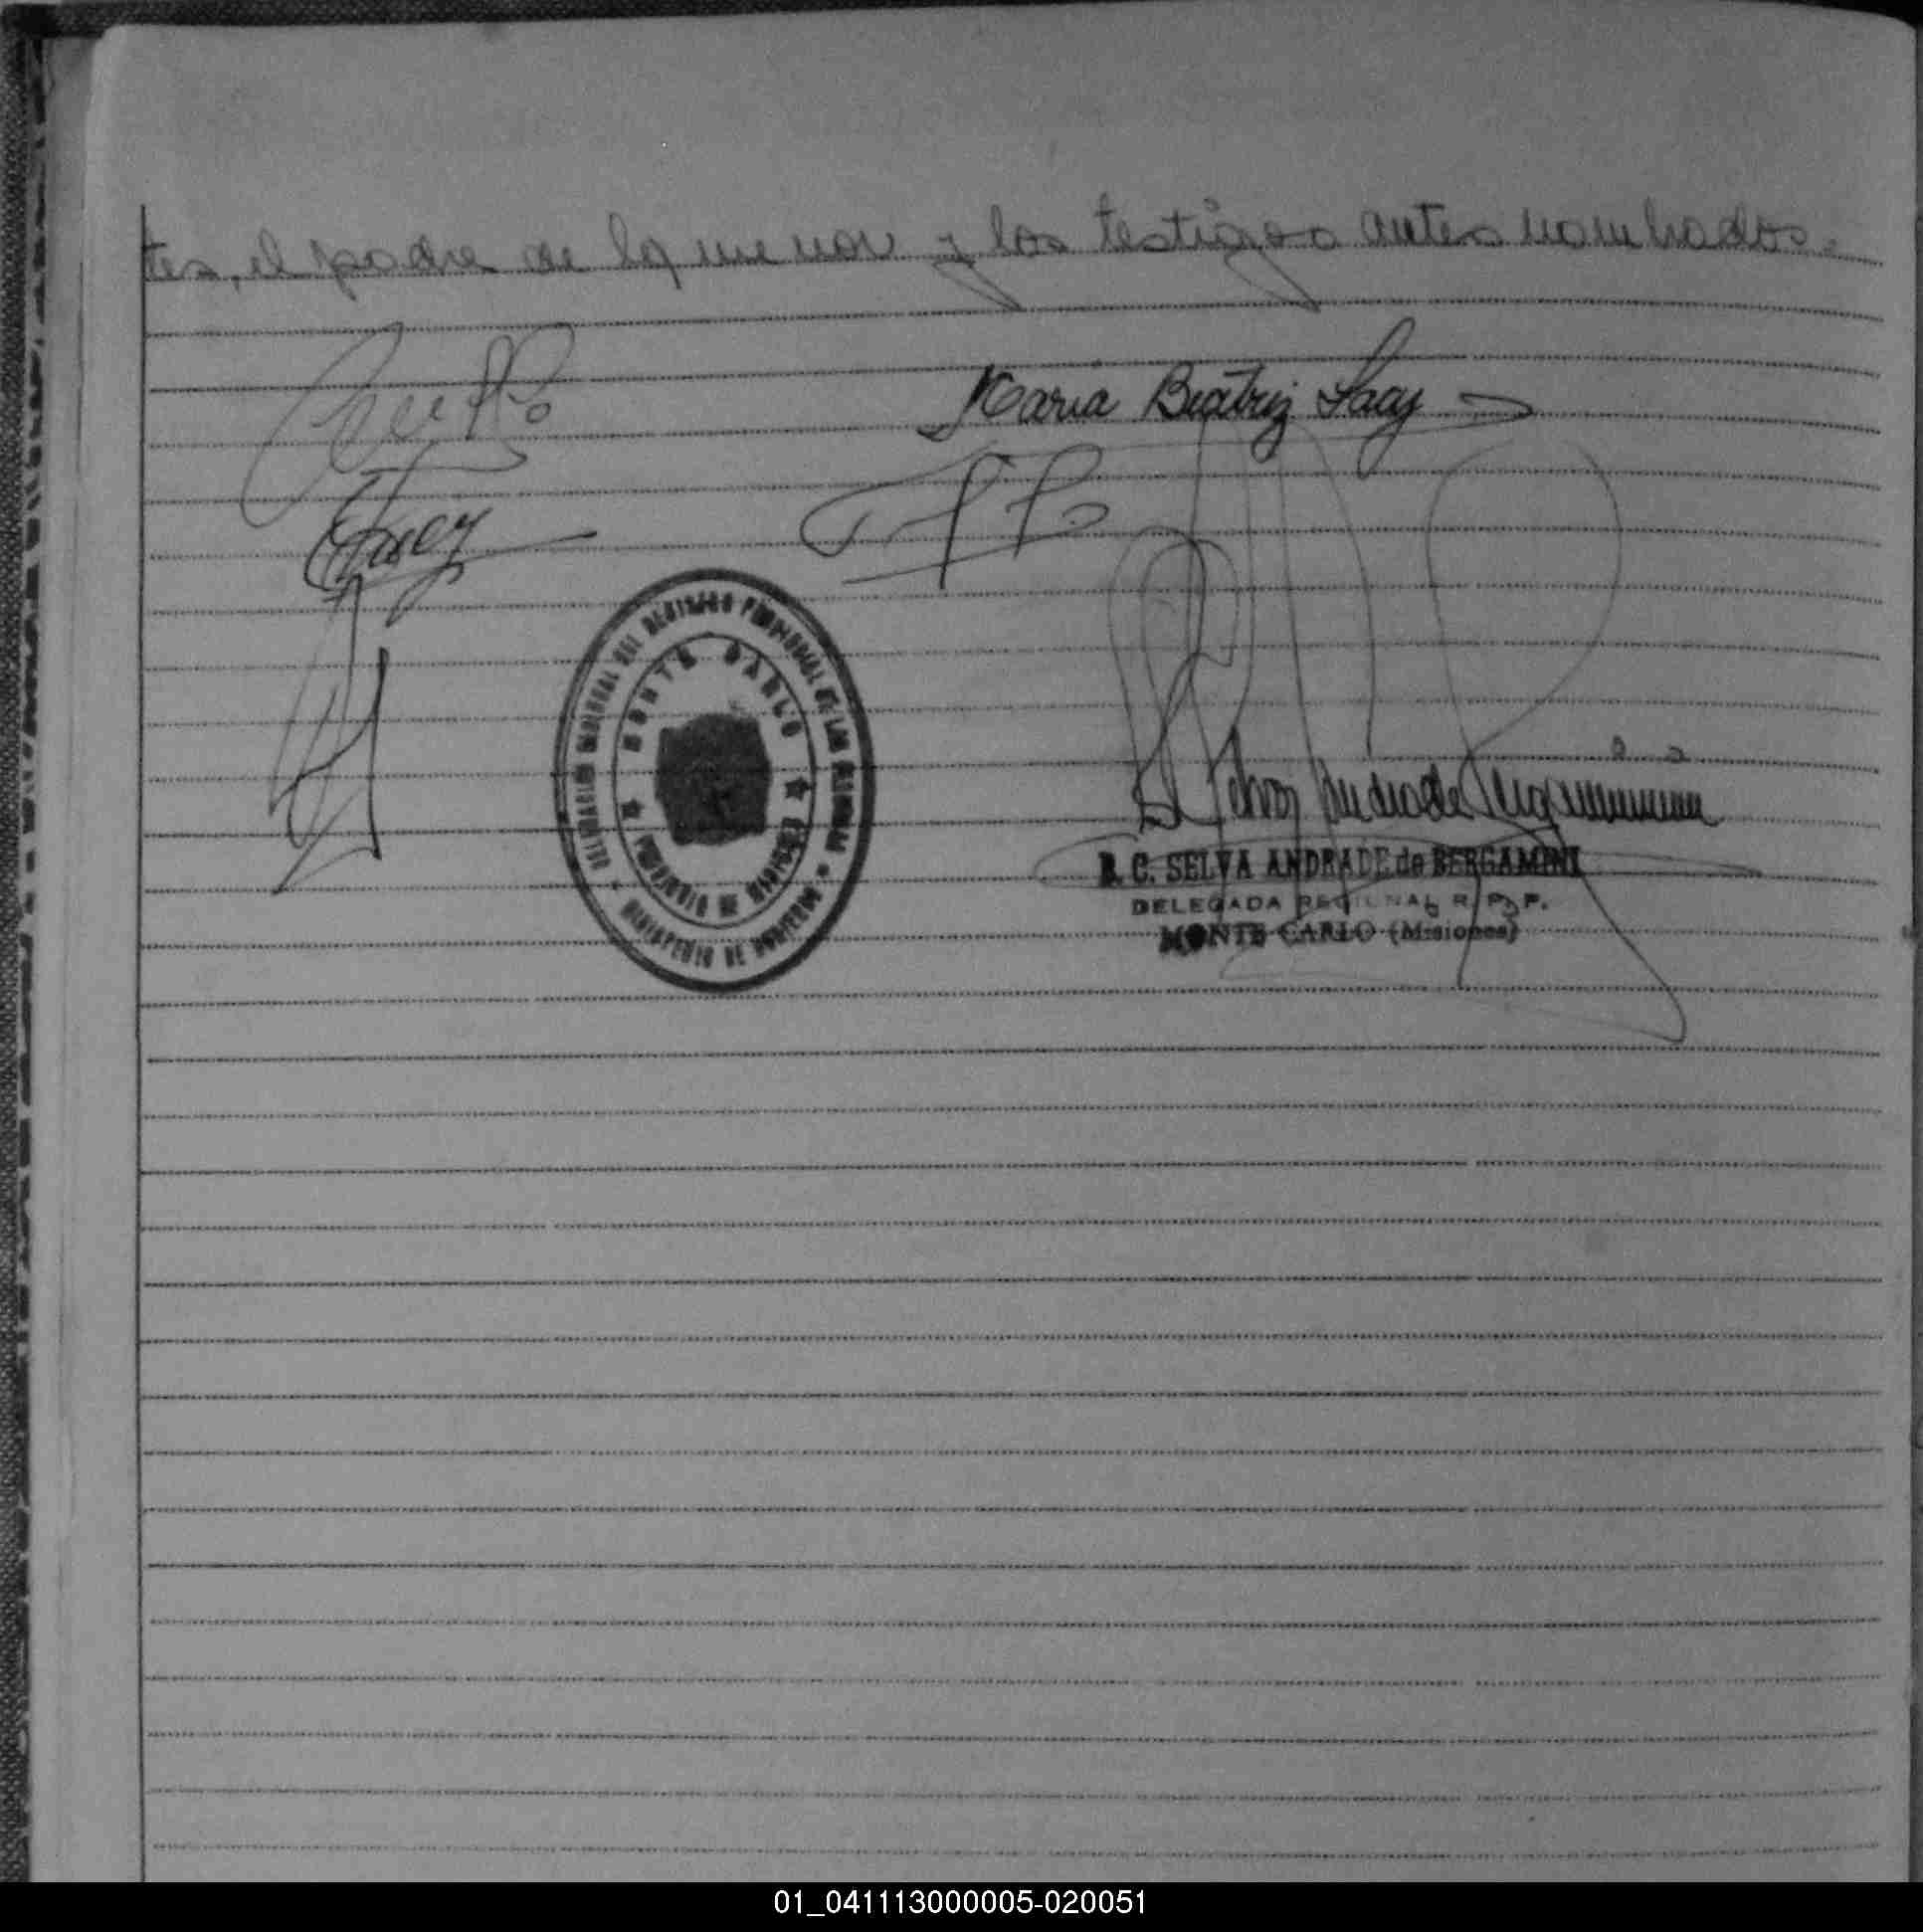 tes, el padre de la menor y los testigos antes nombrados.
Maria Beatriz
DELEGACION REGIONAL DEL REGISTRO PROVINCIAL DE LAS PERSONAS
MONTE CARLO
PROVINCIA DE MISIONES
Selva Andrade Bergamini
B. C. SELVA ANDRADE de BERGAMINI
DELEGADA REGIONAL R. P. P.
MONTE CARLO (Misiones)
01_041113000005-020051